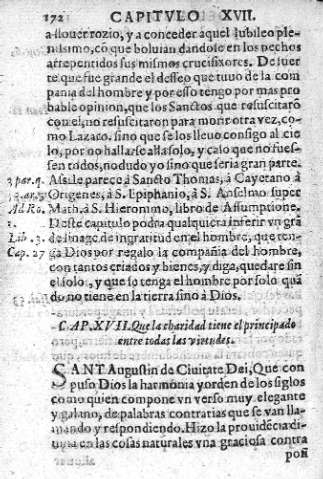 172 CAPITVLO XVII.
a llouer rozio, y a conceder aquel Iubileo ple-
nissimo, cō que boluian dandose en los pechos
arrepentidos sus mismos crucifixores. De suer
te que fue grande el desseo que tuuo de la com
pania del hombre y por esso tengo por mas pro
bable opinion, que los Sanctos que resuscitarō
con el, no resuscitaron para morir otra vez, co-
mo Lazaro. sino que se los lleuo consigo al cie
lo, por no hallarse alla solo, y caso que no fues-
sen todos, no dudo yo sino que seria gran parte.
3. par. q. Assi le parece à Sancto Thomas, à Cayetano à
3. ar. 3. Origenes, à S. Epiphanio, à S. Anselmo super
Ad Ro. Math. à S. Hieronimo, libro de Assumptione.
1. Deste capitulo podra qualquiera inferir vn grā
Lib. 3. de linage de ingratitud en el hombre, que ten-
Cap. 27 ga Dios por regalo la compañia del hombre,
con tantos criados y bienes, y diga, quedare sin
el solo, y que se tenga el hombre por solo quā
do no tiene en la tierra sino à Dios.
CAP. XVII. Que la charidad tiene el principado
entre todas las virtudes.
SANT Augustin de Ciuitate Dei, Que con
puso Dios la harmonia y orden de los siglos
como quien compone vn verso muy elegante
y galano, de palabras contrarias que se van lla-
mando y respondiendo. Hizo la prouidēcia di-
uina en las cosas naturales vna graciosa contra
poñ